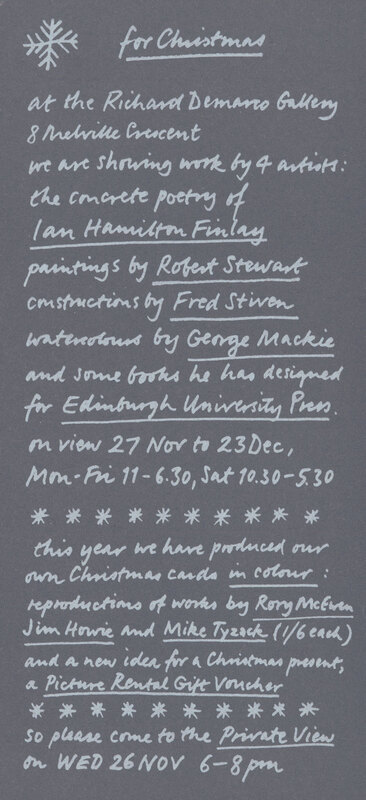 for Christmas
at the Richard Demarco Gallery
8 Melville Crescent
we are showing work by 4 artists:
the concrete poetry of
Ian Hamilton Finlay
paintings by Robert Stewart
constructions by Fred Stiven
watercolours by George Mackie
and some books he has designed
for Edinburgh University Press.
on view 27 Nov to 23 Dec,
Mon-Fri 11-6.30, Sat 10.30-5.30
this year we have produced our
own Christmas cards in colour:
reproductions of works by Rory McEwen
Jim Howie and Mike Tyzack (1/6 each)
and a new idea for a Christmas present,
a Picture Rental Gift Voucher
so please come to the Private View
on WED 26 NOV 6-8pm